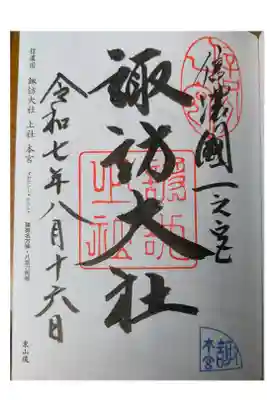 信濃國一之宮
諏訪大社
令和七年八月十六日
信濃国 諏訪大社 上社 本宮
東山道
本宮